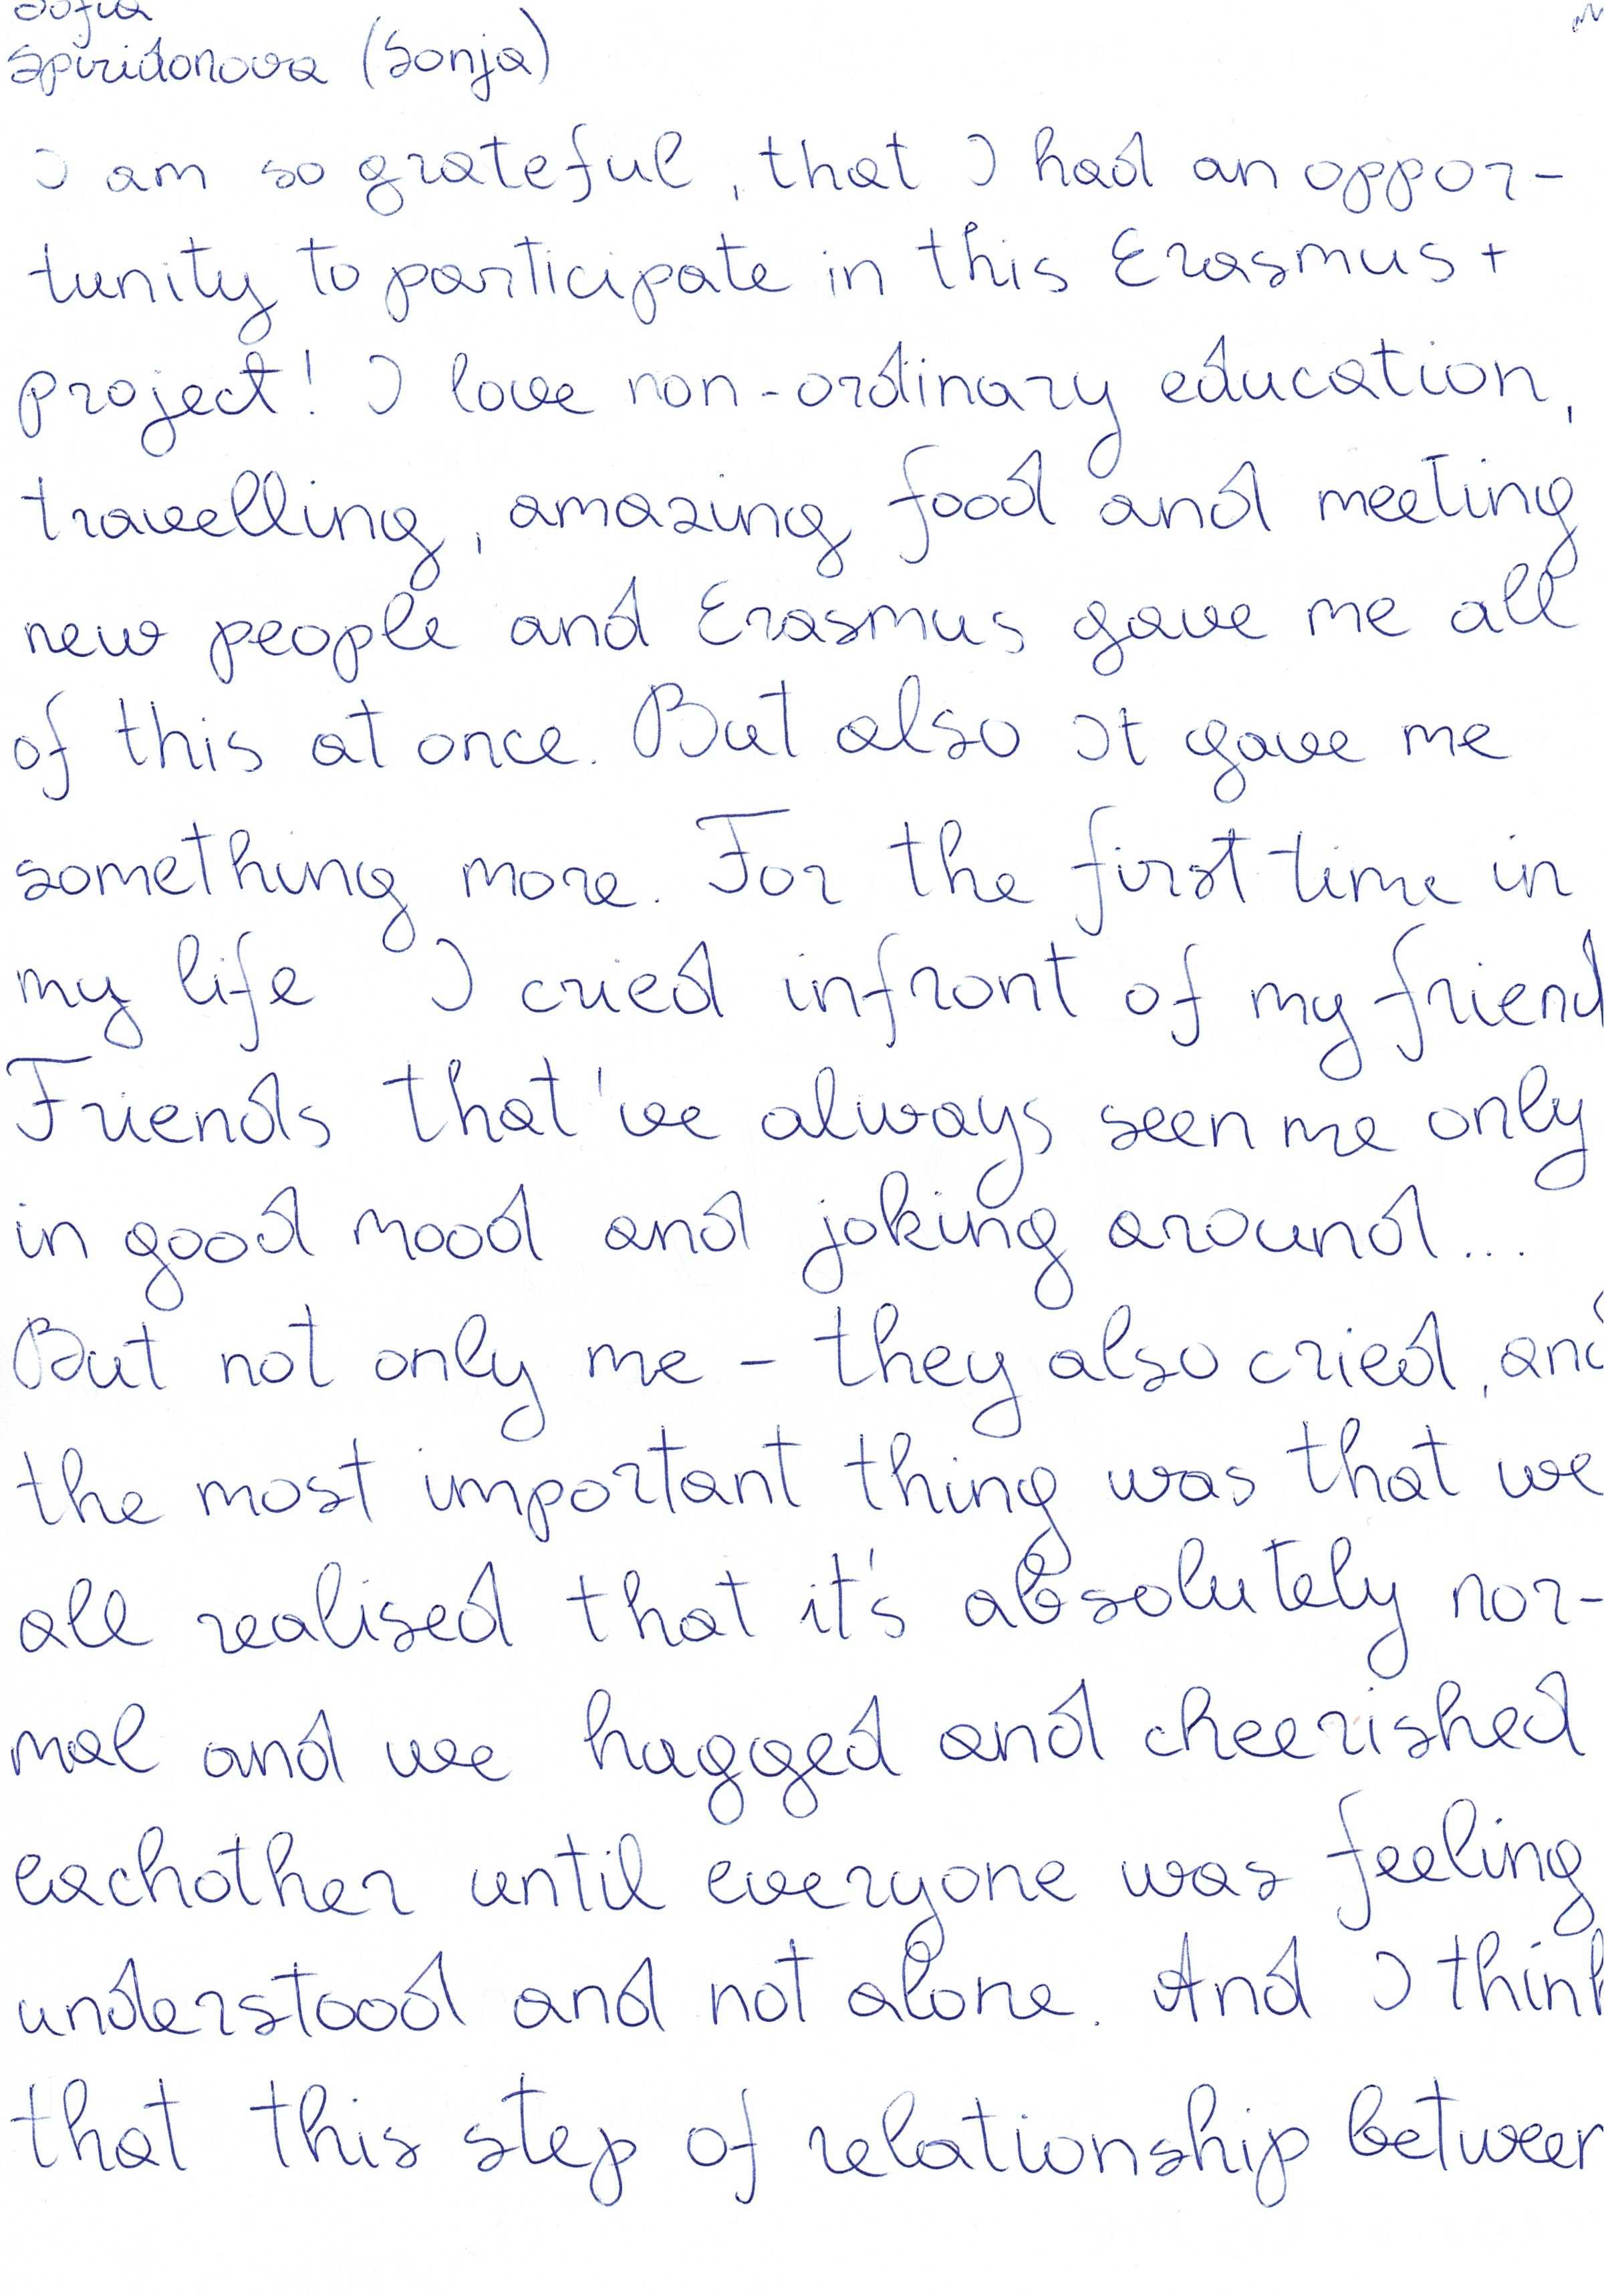 Sofia
Spiridonova (Sonja)
I am so grateful, that I had an oppor-
tunity to participate in this Erasmus+
project! I love non-ordinary education,
travelling, amazing food and meeting
new people and Erasmus gave me all
of this at once. But also It gave me
something more. For the first time in
my life I cried infront of my friend
Friends that've always seen me only
in good mood and joking around...
But not only me - they also cried, and
the most important thing was that we
all realised that it's absolutely nor-
mal and we hugged and cheerished
eachother until everyone was feeling
understood and not alone. And I think
that this step of relationship between